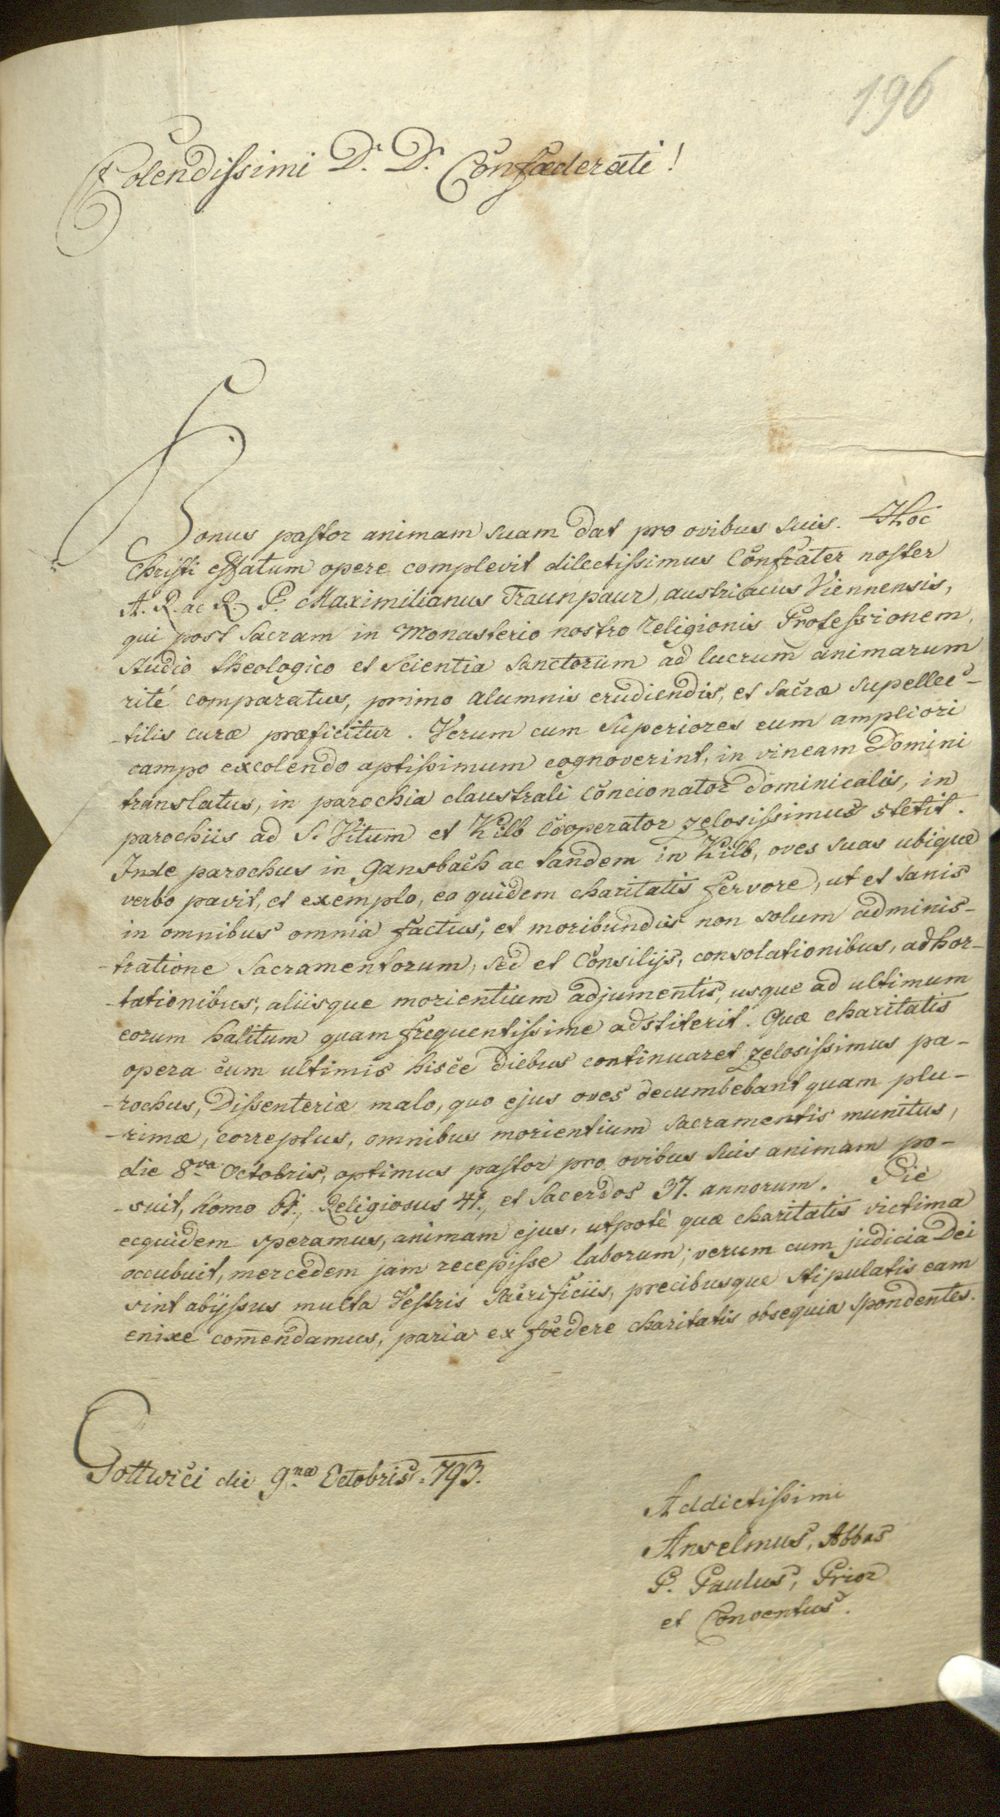 196
Colendissimi D. D. Confœderati!
Bonus pastor animam suam dat pro ovibus suis. Hoc
Christi effatum opere complevit dilectissimus Confrater noster
A. R. ac R. P. Maximilianus Traunpaur, austriacus Viennensis,
qui post Sacram in Monasterio nostro Religionis Professionem,
studio theologico et Scientia Sanctorum ad lucrum animarum
rité comparatus, primo alumnis erudiendis, et Sacræ supellec-
-tilis curæ præficitur. Verum cum Superiores eum ampliori
campo excolendo aptissimum cognoverint, in vineam Domini
translatus, in parochia claustrali Concionator Dominicalis, in
parochiis ad S. Vitum et Kilb Cooperator zelosissimus stetit.
Inde parochus in Gansbach ac tandem in Kilb, oves suas ubique
verbo pavit, et exemplo, eo quidem charitatis fervore, ut et sanis
in omnibus omnia factus, et moribundis non solum adminis-
-tratione Sacramentorum, sed et Consilijs, consolationibus, adhor-
-tationibus, aliisque morientium adjumentis, usque ad ultimum
eorum halitum quam frequentissime adstiterit. Quæ charitatis
opera cum ultimis hisce diebus continuaret zelosissimus pa-
-rochus, Dissenteriæ malo, quo ejus oves decumbebant quam plu-
-rimæ, correptus, omnibus morientium sacramentis munitus,
die 8va Octobris, optimus pastor pro ovibus suis animam po-
-suit, homo 61., Religiosus 41., et Sacerdos 37. annorum. Pie
ecquidem speramus, animam ejus, utpoté quæ charitatis victima
occubuit, mercedem jam recepisse laborum; verum cum judicia Dei
sint abyssus multa Vestris Sacrificiis, precibusque stipulatis eam
enixe com̄endamus, paria ex fœdere charitatis obsequia spondentes.
Gottwici die 9na Octobris. 793.
Addictissimi
Anselmus, Abbas
P. Paulus, Prior
et Conventus.